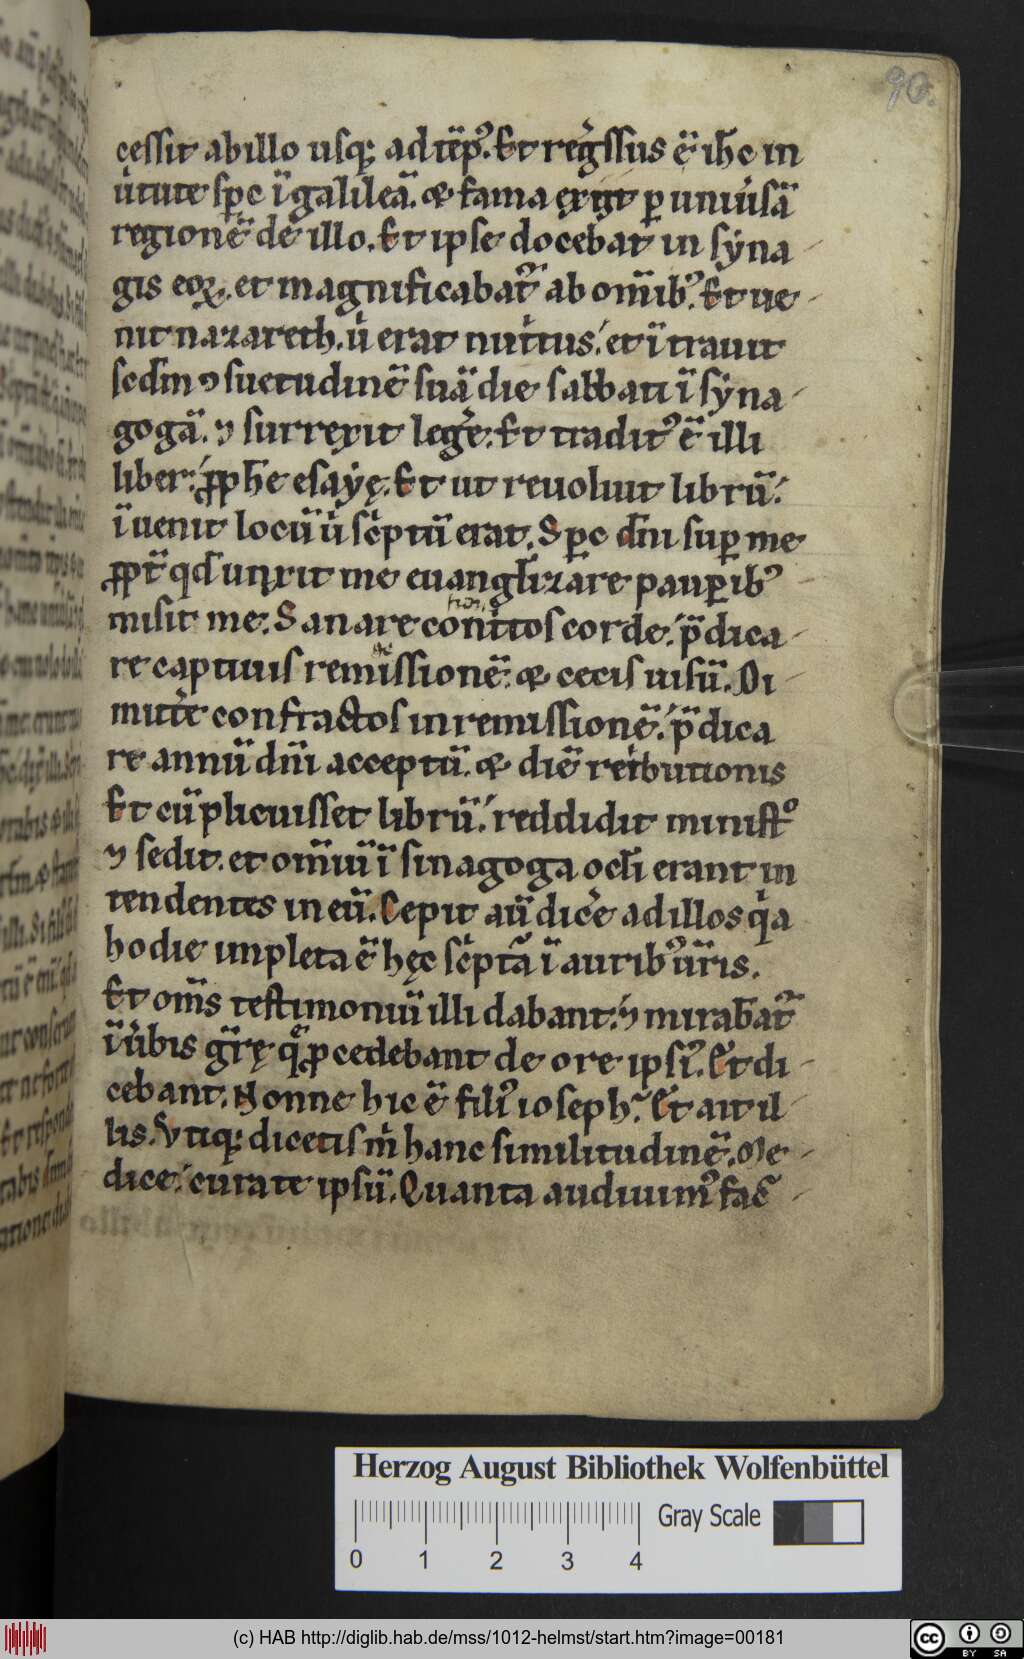 90.
cessit ab illo usq; ad tēp᷒. Et reg̓ssus ē ih̄c in
u̓tute sp̄c ī galileā. & fama exiit p̱ uniu̓sā
regionē de illo. Et ipse docebat in sẏna
gis eoꝝ. et magnificabat᷑ ab om̄ib᷒. Et ue
nit nazareth. u̓ erat nutͥtus. et ītrauit
sedm̄ ꝯsuetudinē suā die sabbati ī sẏna
gogā. ⁊ surrexit leg̓e. Et tradit᷒ ē illi
liber ꝓph̄e esaẏę. Et ut reuoluit librū.
īuenit locū u̓ scͥptū erat. Sp̄c dn̄i sup̱ me
ꝓpt̄ qd̄ unxit me euangl̄izare paup̱ib᷒
misit me. Sanare contͥtos corde. p̄dica
re captiuis remissionē. & cecis uisū. Di
mitt̓e confractos in remissionē. p̄dica
re annū dn̄i acceptū. & diē retͥbutionis
Et cū plicuisset librū. reddidit minist̊
⁊ sedit. et om̄iū ī sinagoga ocl̄i erant in
tendentes in eū. Cepit aū dic̓e ad illos qͥa
hodie impleta ē hęc scͥptᷓa ī aurib᷒ ur̄is.
Et om̄s testimoniū illi dabant. ⁊ mirab̄at᷑
ī u̓bis gr̄ę q̄ ꝓcedebant de ore ipsi᷒. Et di
cebant. Nonne hic ē fili᷒ ioseph. Et ait il
lis. Vtiq; dicetis mͥ hanc similitudinē. Me
dice. cura te ipsū. Quanta audiuim᷒ fac̄
Herzog August Bibliothek Wolfenbüttel
Gray Scale
0 1 2 3 4
(c) HAB http://diglib.hab.de/mss/1012-helmst/start.htm?image=00181
cc BY SA